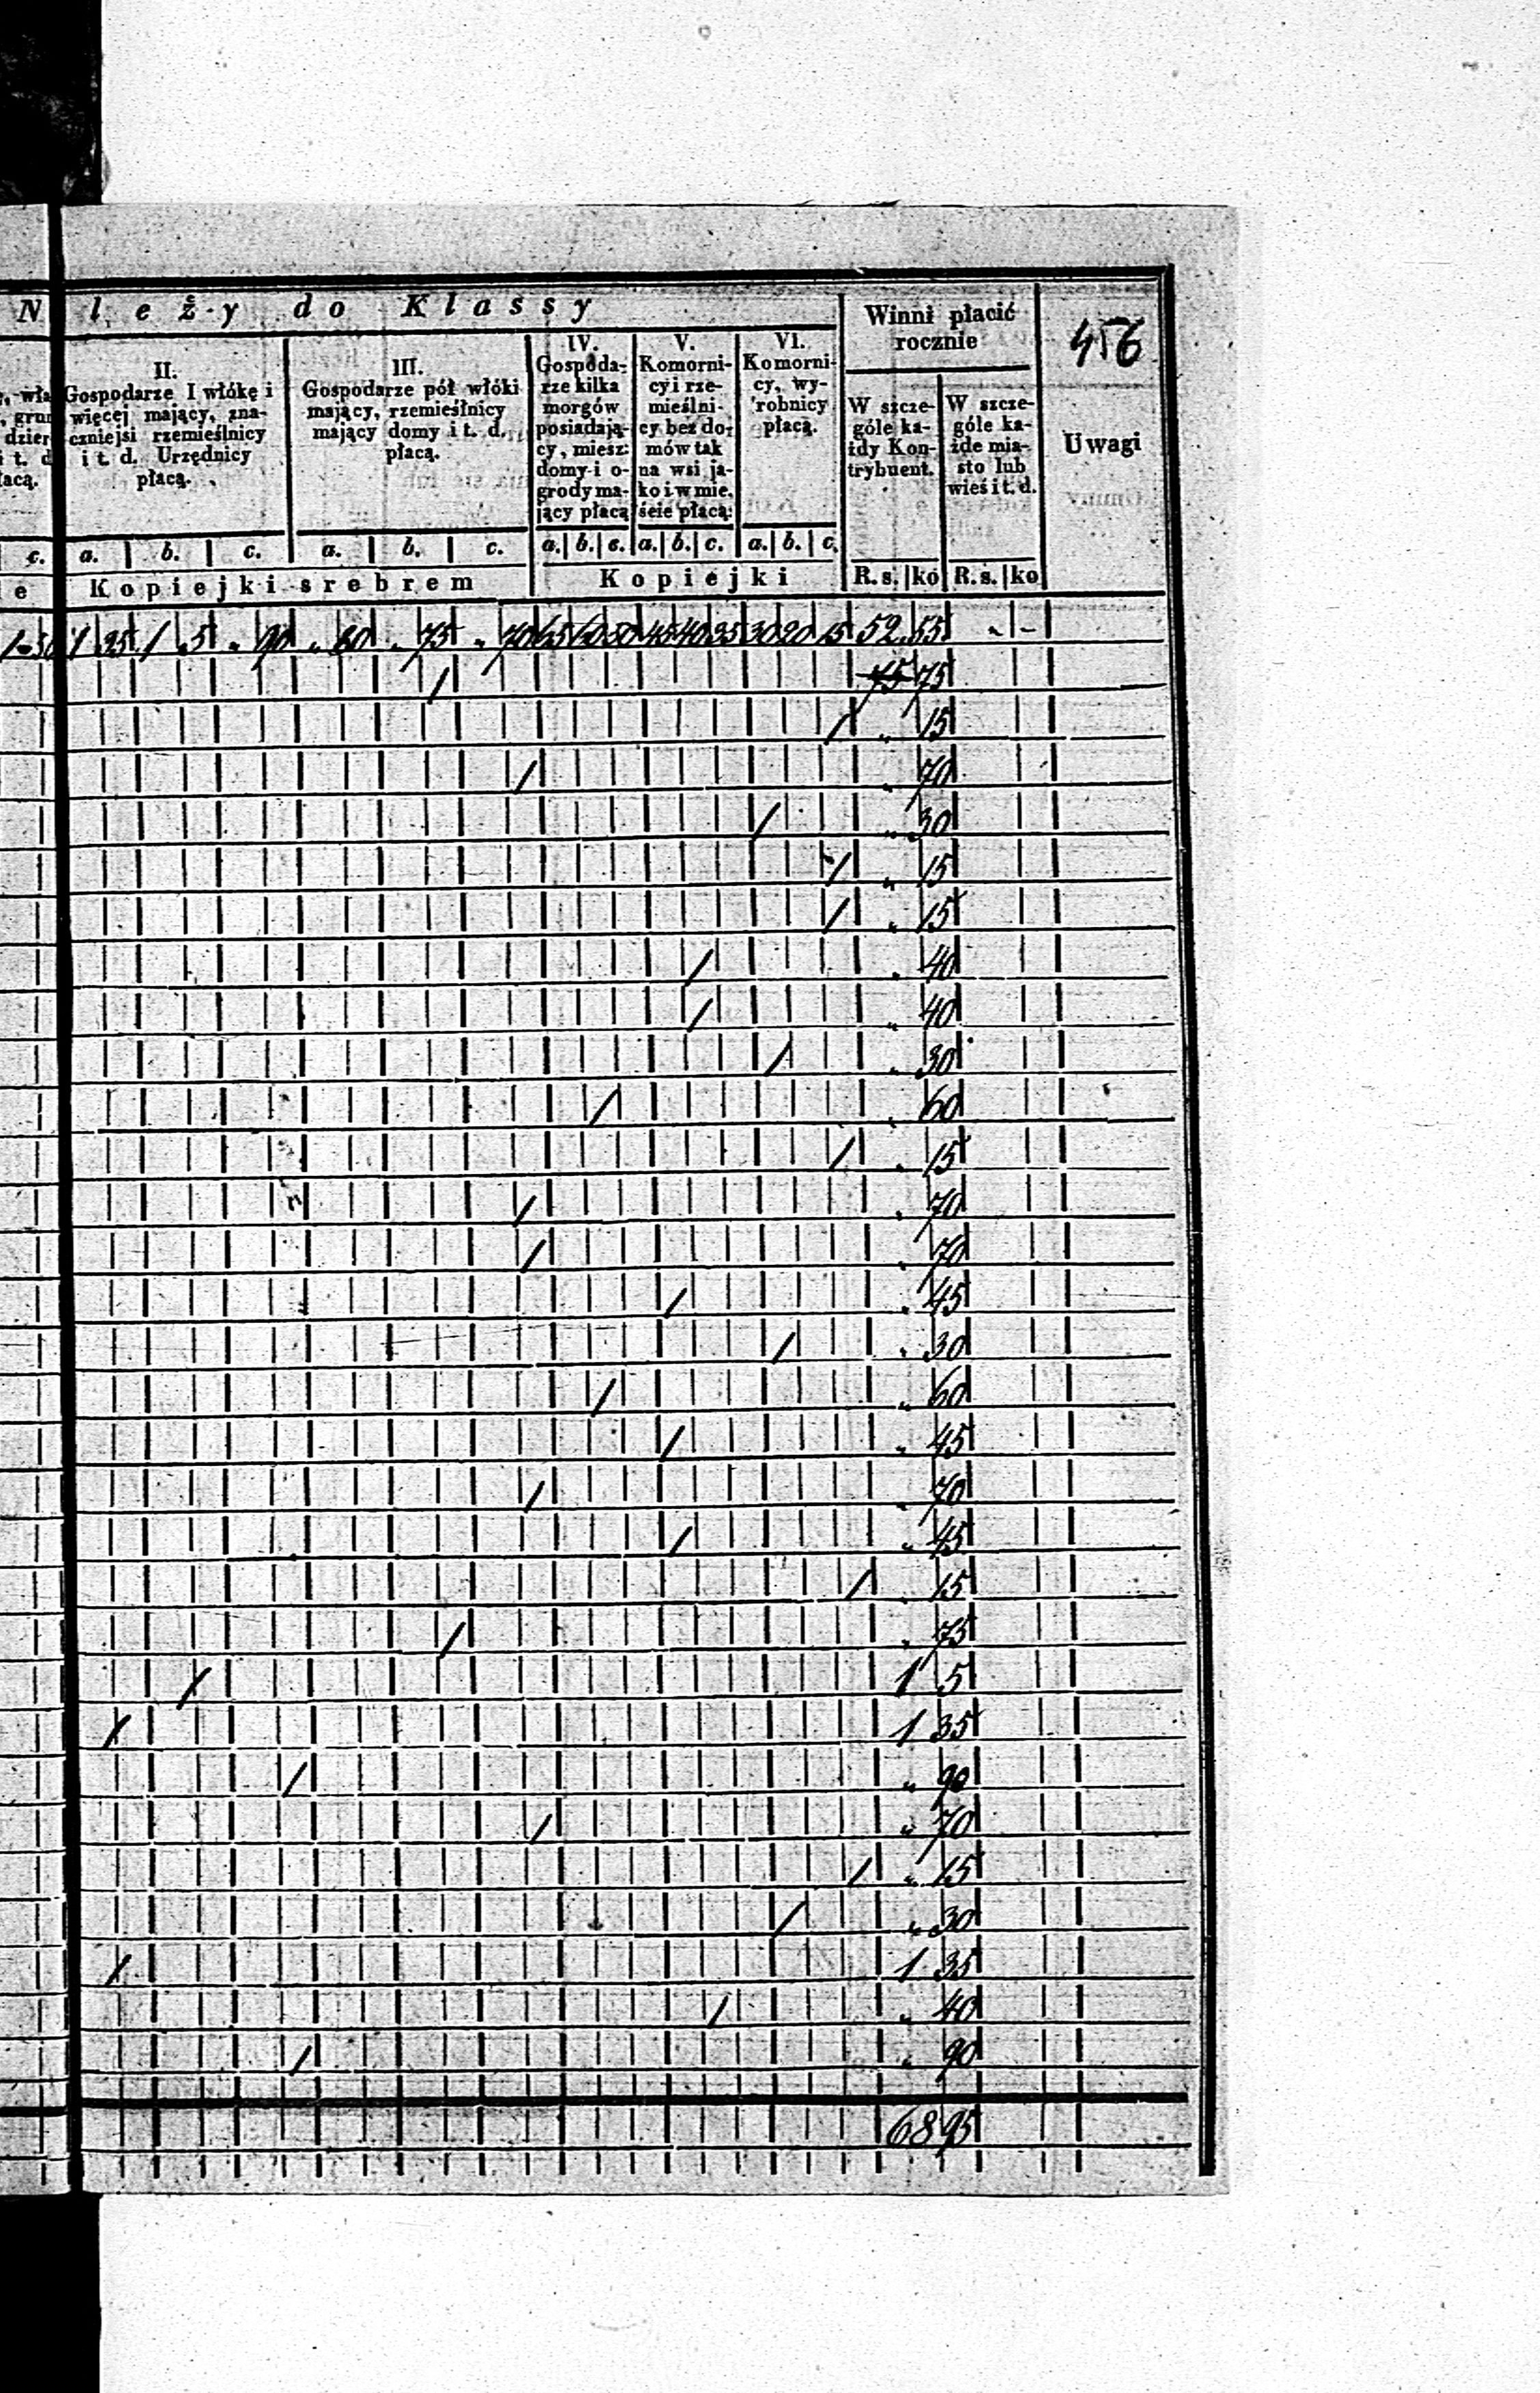 N l e ż y do Klassy
Winni płacić
rocznie
456
II.
Gospodarze I włókę i
więcej mający, zna-
czniejsi rzemieślnicy
i t. d. Urzędnicy
płacą.
III.
Gospodarze pół włóki
mający, rzemieślnicy
mający domy i t. d.
płacą.
IV.
Gospoda-
rze kilka
morgów
posiadają-
cy, miesz:
domy i o-
grody ma-
jący płacą
V.
Komorni-
cy i rze-
mieślni-
cy bez do-
mów tak
na wsi ja-
ko i w mie-
ście płacą:
VI.
Komorni-
cy, wy-
robnicy
płacą.
W szcze-
góle ka-
żdy Kon-
trybuent.
W szcze-
góle ka-
żde mia-
sto lub
wieś i t. d.
Uwagi
c. a. b. c. a. b. c. a. b. c. a. b. c. a. b. c.
e Kopiejki srebrem Kopiejki R. s. ko R. s. ko
1 35 1 5 " 90 " 80 " 75 " 70 65 60 50 45 40 35 30 20 15 52 55 - -
/ 75 75
/ " 15
/ " 70
/ " 30
/ " 15
/ " 15
/ " 40
/ " 40
/ " 30
/ " 60
/ " 15
/ " 70
/ " 70
/ " 45
/ " 30
/ " 60
/ " 45
/ " 70
/ " 45
/ " 15
/ " 75
/ 1 5
/ 1 35
/ " 90
/ " 70
/ " 15
/ " 30
/ 1 35
/ " 40
/ " 90
68 95